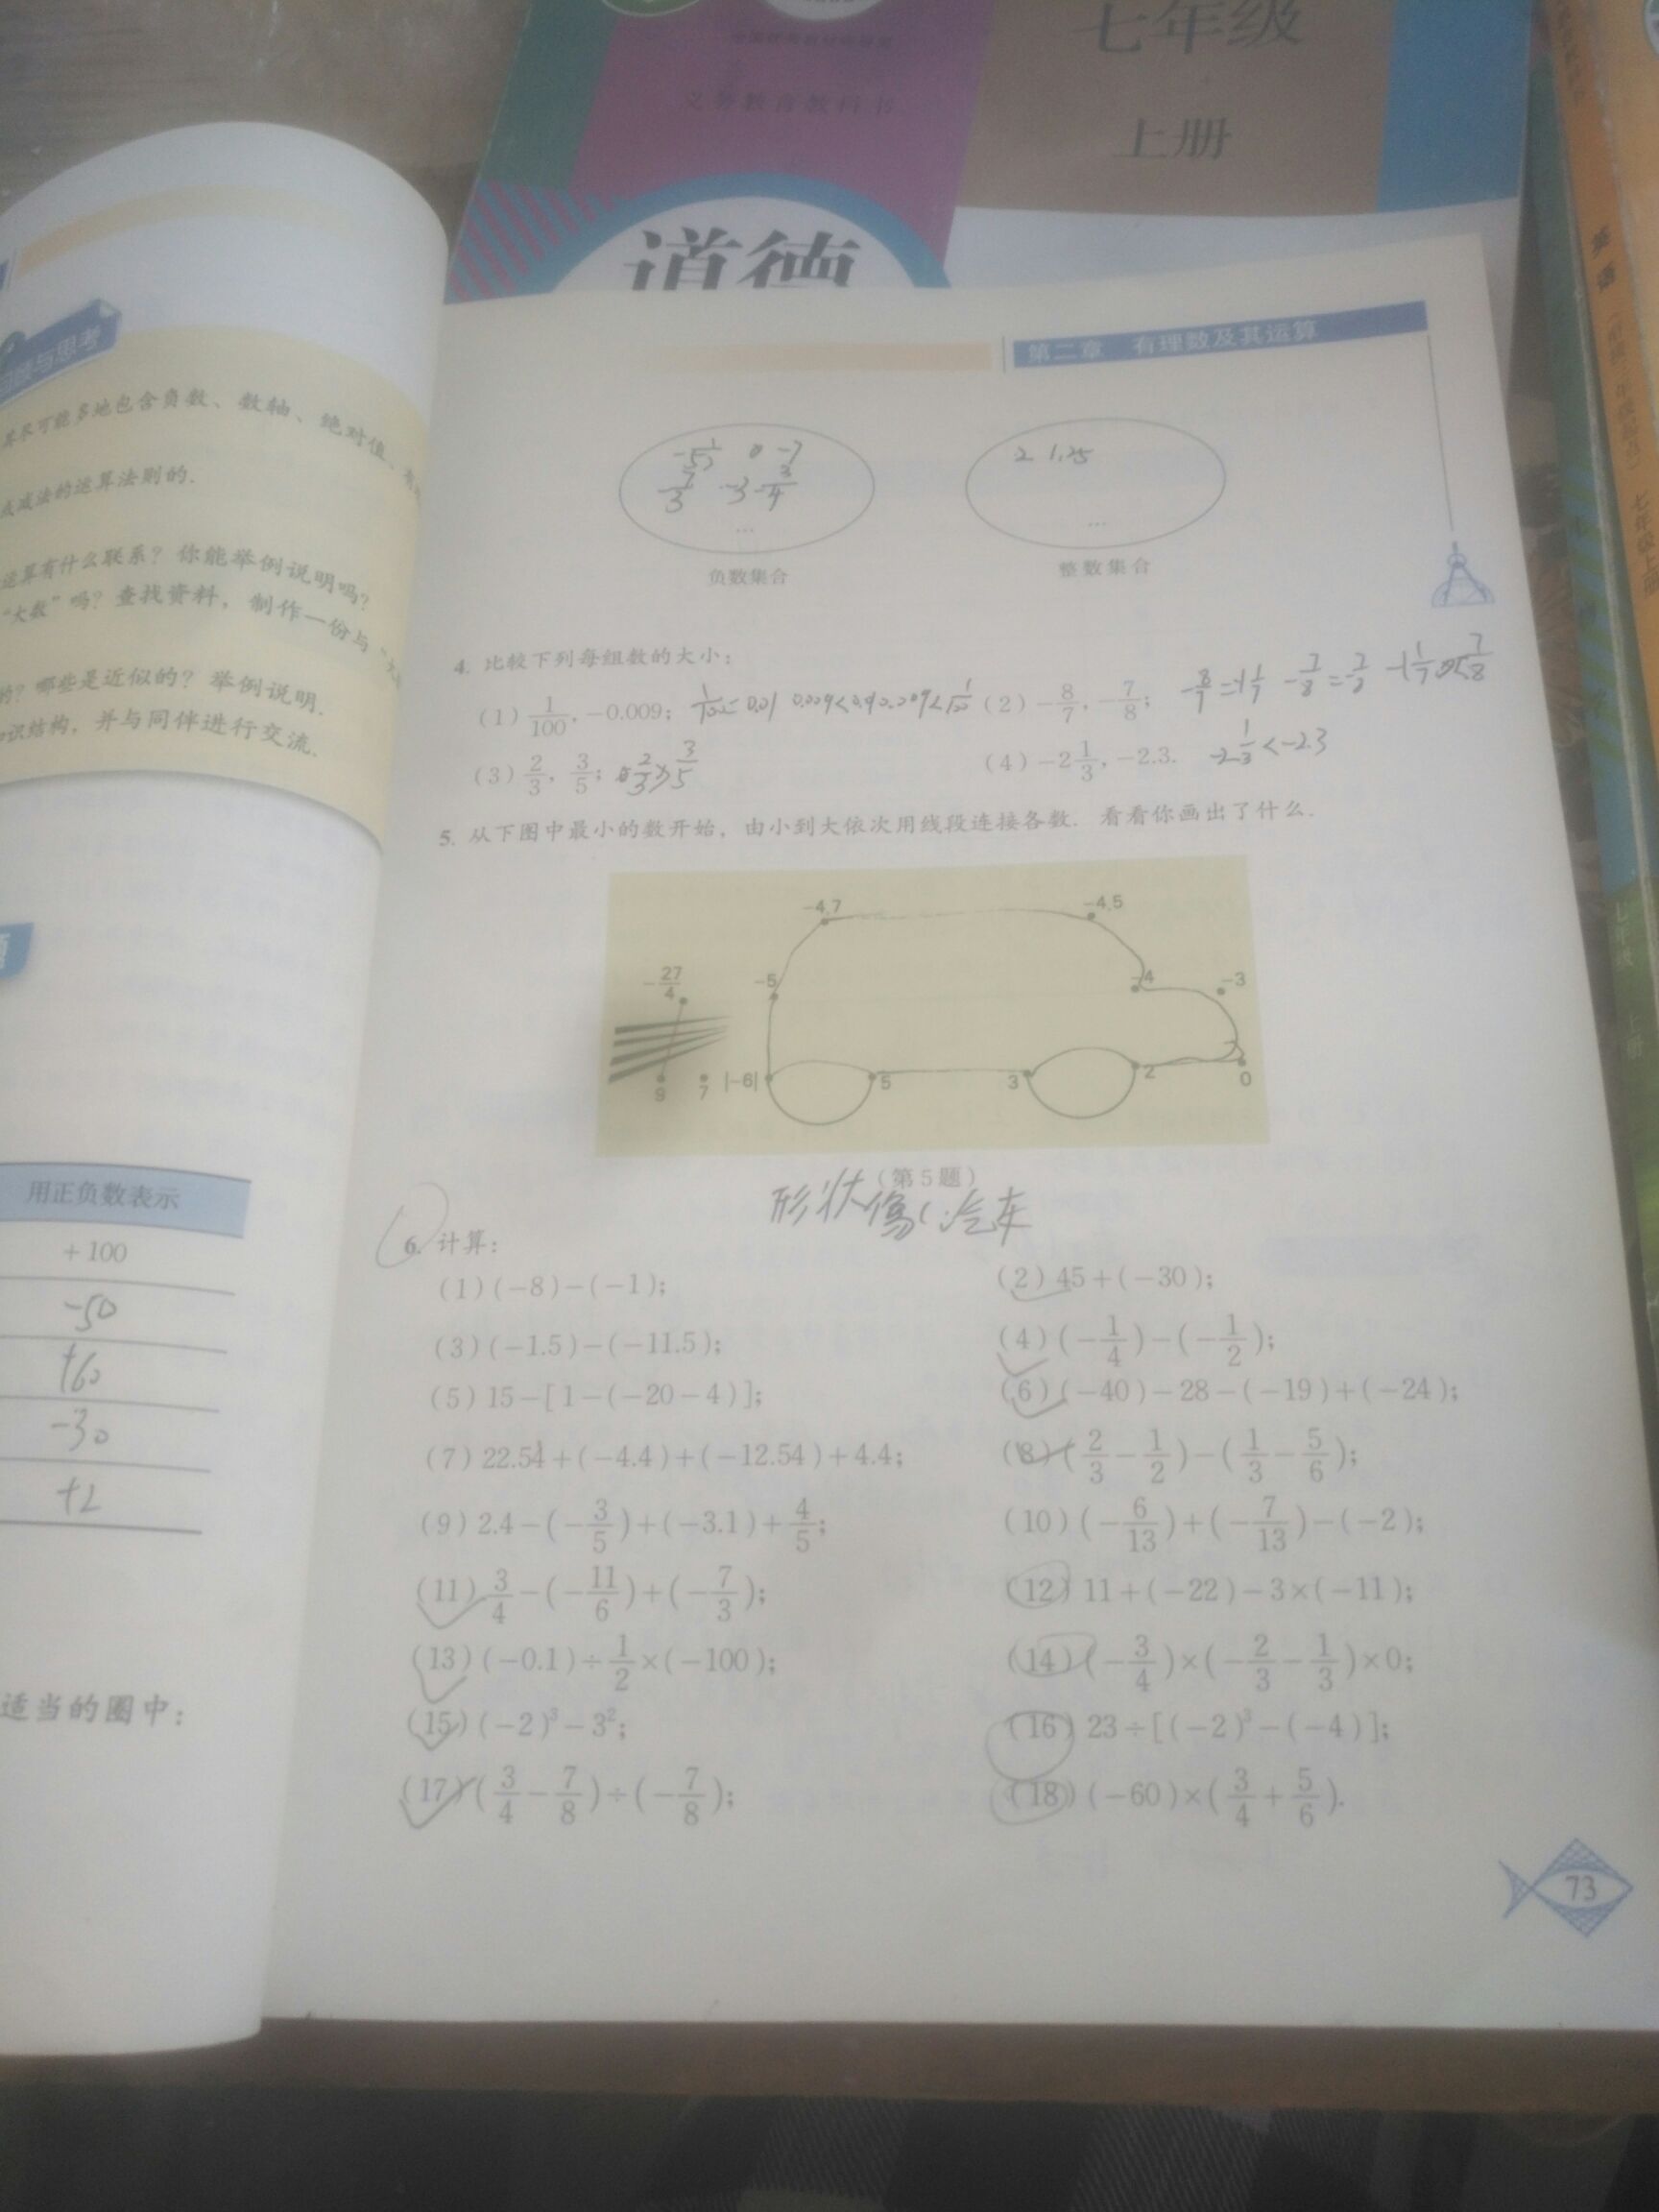 七年级
义务教育教科书
上册
道德
英语
七年级上册
与思考
尽可能多地包含负数、数轴、绝对值、
减法的运算法则的.
运算有什么联系？你能举例说明吗？
“大数”吗？查找资料，制作一份与“
的？哪些是近似的？举例说明.
识结构，并与同伴进行交流.
用正负数表示
+100
-50
+60
-30
+2
适当的圈中：
第二章 有理数及其运算
0 -7
-3 -3/4
…
负数集合
2 1.25
…
整数集合
4. 比较下列每组数的大小：
(1) 1/100, -0.009; 1/100=0.01
(2) -8/7, -7/8; -8/7=-1 1/7
(3) 2/3, 3/5; 2/3>3/5
(4) -2 1/3, -2.3. -2 1/3<-2.3
5. 从下图中最小的数开始，由小到大依次用线段连接各数. 看看你画出了什么.
-4.7 -4.5
-27/4 -5 -4 -3
9 7 |-6| 5 3 2 0
(第5题)
形状像汽车
6. 计算：
(1) (-8)-(-1);
(2) 45+(-30);
(3) (-1.5)-(-11.5);
(4) (-1/4)-(-1/2);
(5) 15-[1-(-20-4)];
(6) (-40)-28-(-19)+(-24);
(7) 22.54+(-4.4)+(-12.54)+4.4;
(8) (2/3-1/2)-(1/3-5/6);
(9) 2.4-(-3/5)+(-3.1)+4/5;
(10) (-6/13)+(-7/13)-(-2);
(11) 3/4-(-11/6)+(-7/3);
(12) 11+(-22)-3×(-11);
(13) (-0.1)÷1/2×(-100);
(14) (-3/4)×(-2/3-1/3)×0;
(15) (-2)³-3²;
(16) 23÷[(-2)³-(-4)];
(17) (3/4-7/8)÷(-7/8);
(18) (-60)×(3/4+5/6).
73